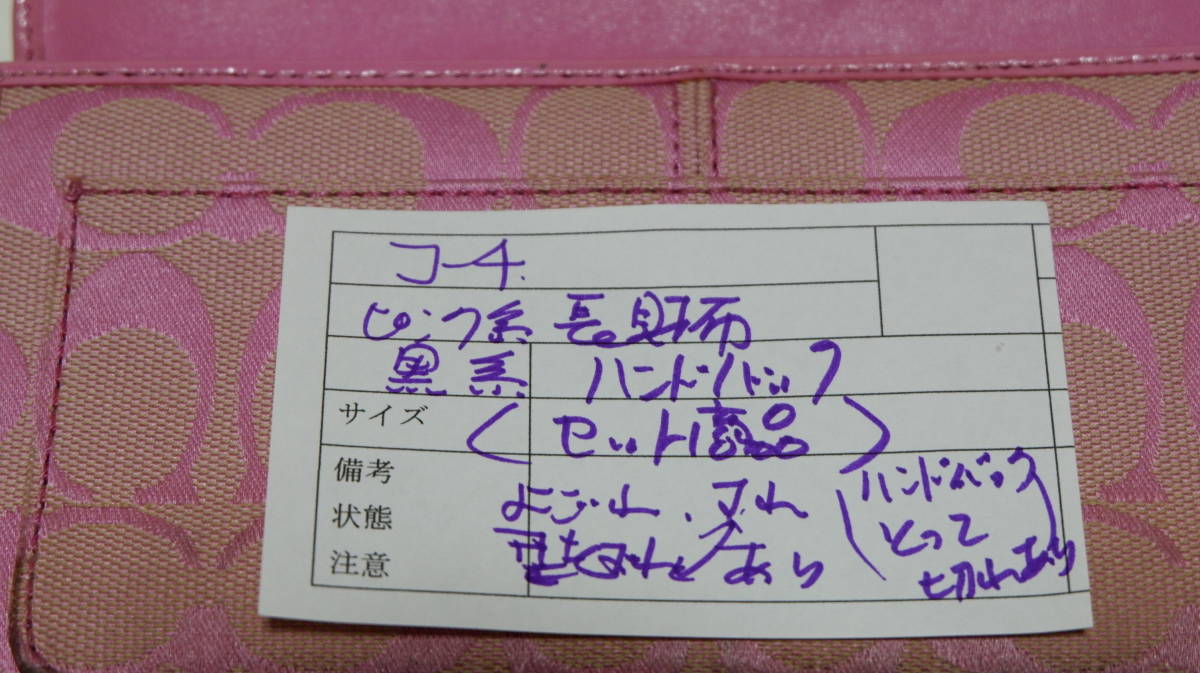 コーチ
ピンク系 長財布
黒系 ハンドバック
サイズ (セット商品)
備考
状態 よごれ、スれ
注意 型くずれ あり
(ハンドバック
とって
切れあり)